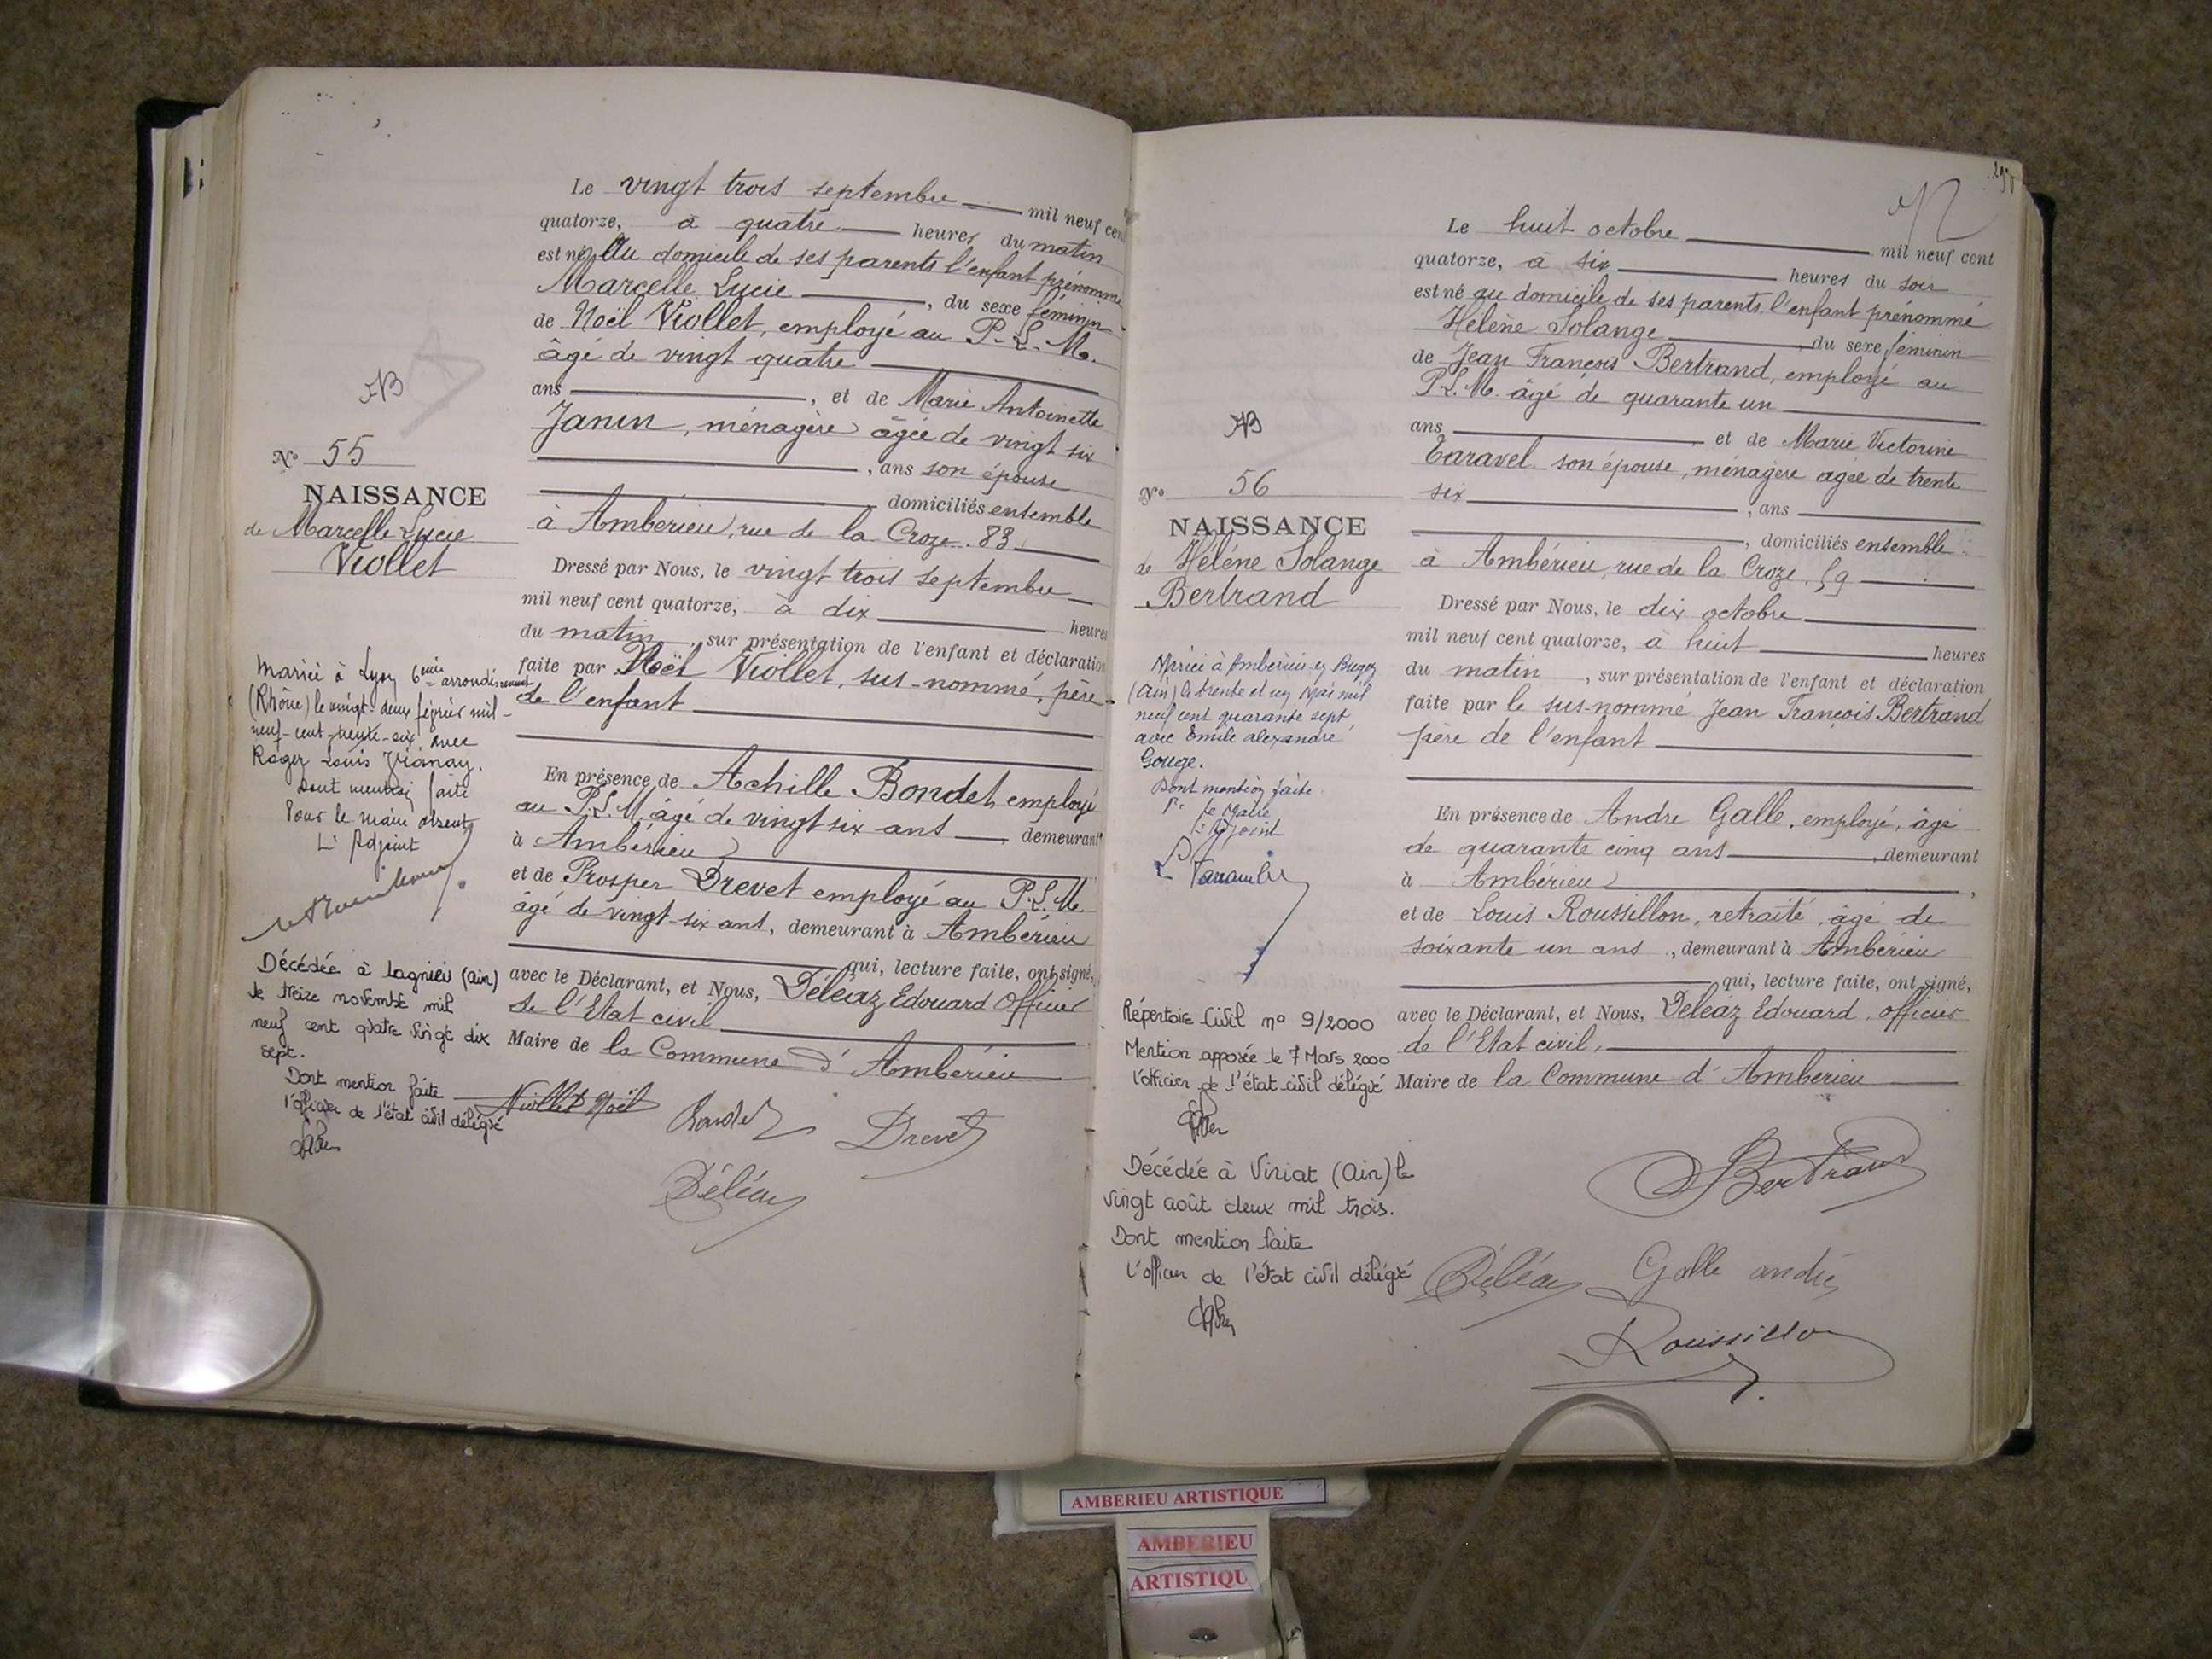 Le vingt trois septembre mil neuf cent
quatorze, à quatre heures du matin
est né Au domicile de ses parents l'enfant prénommé
Marcelle Lucie, du sexe féminin
de Noël Viollet, employé au P.L.M.
âgé de vingt quatre
ans, et de Marie Antoinette
Janin, ménagère âgée de vingt six
, ans son épouse
domiciliés ensemble
à Ambérieu, rue de la Croze. 83
Dressé par Nous, le vingt trois septembre
mil neuf cent quatorze, à dix heures
du matin, sur présentation de l'enfant et déclaration
faite par Noël Viollet, sus-nommé, père
de l'enfant
En présence de Achille Bondet, employé
au P.L.M. âgé de vingt six ans demeurant
à Ambérieu
et de Prosper Drevet employé au P.L.M.
âgé de vingt-six ans, demeurant à Ambérieu
qui, lecture faite, ont signé,
avec le Déclarant, et Nous, Déléaz Edouard Officier
de l'Etat civil
Maire de la Commune d'Ambérieu
Viollet Noël Bondet Drevet
Déléaz
AB
N° 55
NAISSANCE
de Marcelle Lucie
Viollet
Mariée à Lyon 6eme arrondissement
(Rhône) le vingt-deux février mil-
neuf-cent-trente-six, avec
Roger Louis Vianay.
Dont mention faite
Pour le maire absent
L' Adjoint
Décédée à Lagnieu (Ain)
le treize novembre mil
neuf cent quatre vingt dix
sept.
Dont mention faite
l'officier de l'état civil délégué
Le huit octobre mil neuf cent
quatorze, à six heures du soir
est né au domicile de ses parents, l'enfant prénommé
Hélène Solange, du sexe féminin
de Jean François Bertrand, employé au
P.L.M. âgé de quarante un
ans et de Marie Victorine
Taravel son épouse, ménagère agée de trente
six, ans
, domiciliés ensemble
à Ambérieu, rue de la Croze, 59
Dressé par Nous, le dix octobre
mil neuf cent quatorze, à huit heures
du matin, sur présentation de l'enfant et déclaration
faite par le sus-nommé Jean François Bertrand
père de l'enfant
En présence de Andre Galle, employé, âgé
de quarante cinq ans, demeurant
à Ambérieu,
et de Louis Roussillon, retraité, âgé de
soixante un ans, demeurant à Ambérieu
qui, lecture faite, ont signé,
avec le Déclarant, et Nous, Déléaz Edouard, officier
de l'Etat civil,
Maire de la Commune d'Ambérieu
Bertrand
Déléaz Galle andré
Roussillon
AB
N° 56
NAISSANCE
de Hélène Solange
Bertrand
Mariée à Ambérieu-en Bugey
(Ain) le trente et un Mai mil
neuf cent quarante sept
avec Emile alexandre
Gouge.
Dont mention faite.
Pr le Maire
l'Adjoint
Répertoire Civil n° 9/2000
Mention apposée le 7 Mars 2000
l'officier de l'état civil délégué
Décédée à Viriat (Ain) le
vingt août deux mil trois.
Dont mention faite
l'officier de l'état civil délégué
AMBERIEU ARTISTIQUE
AMBERIEU
ARTISTIQU